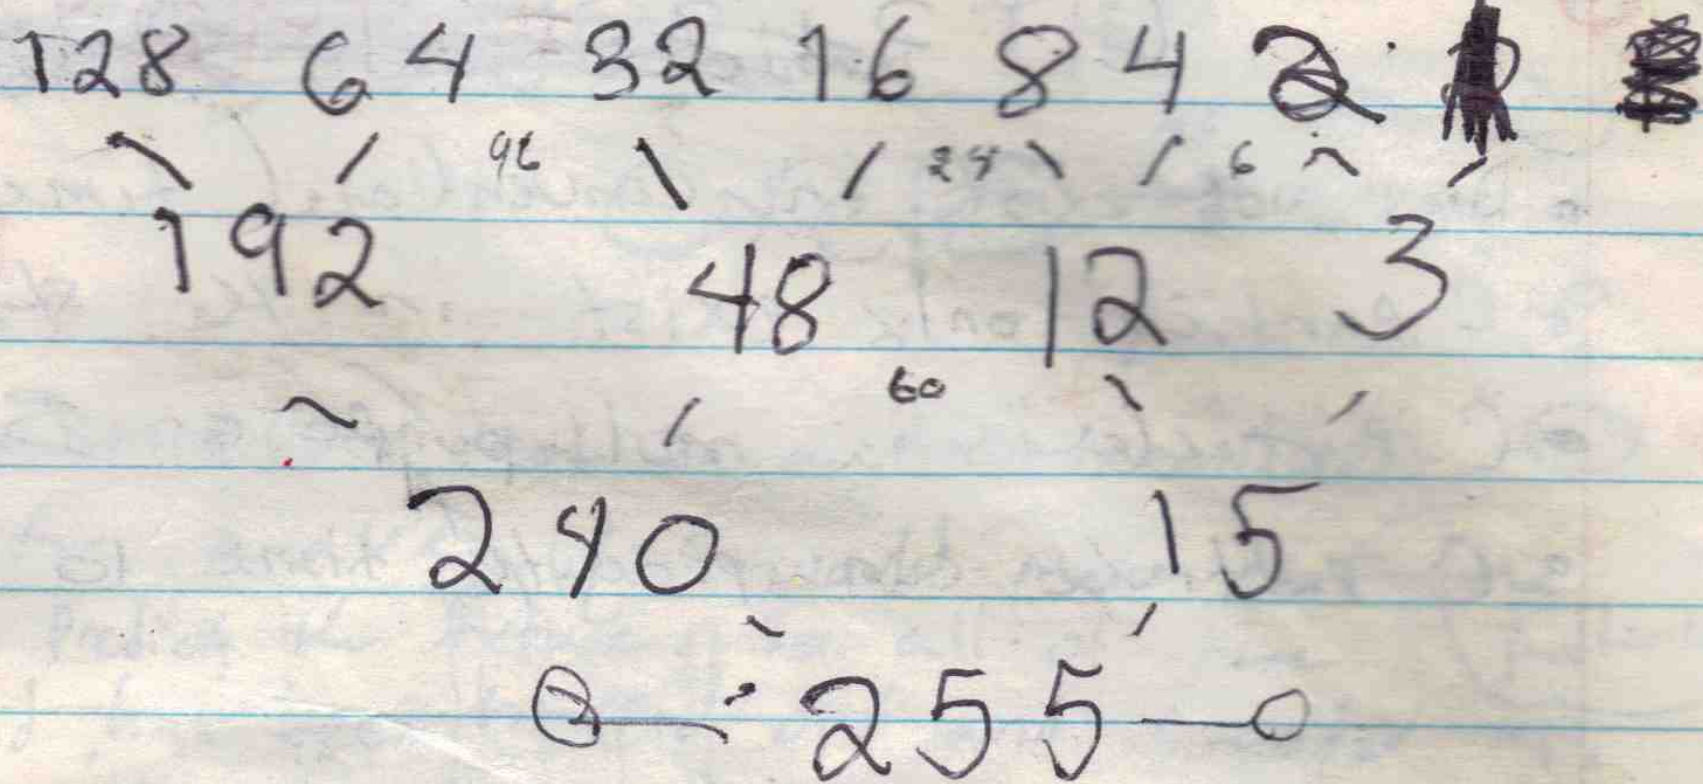 128 64 32 16 8 4 2
96 24 6
192 48 12 3
60
240 15
255